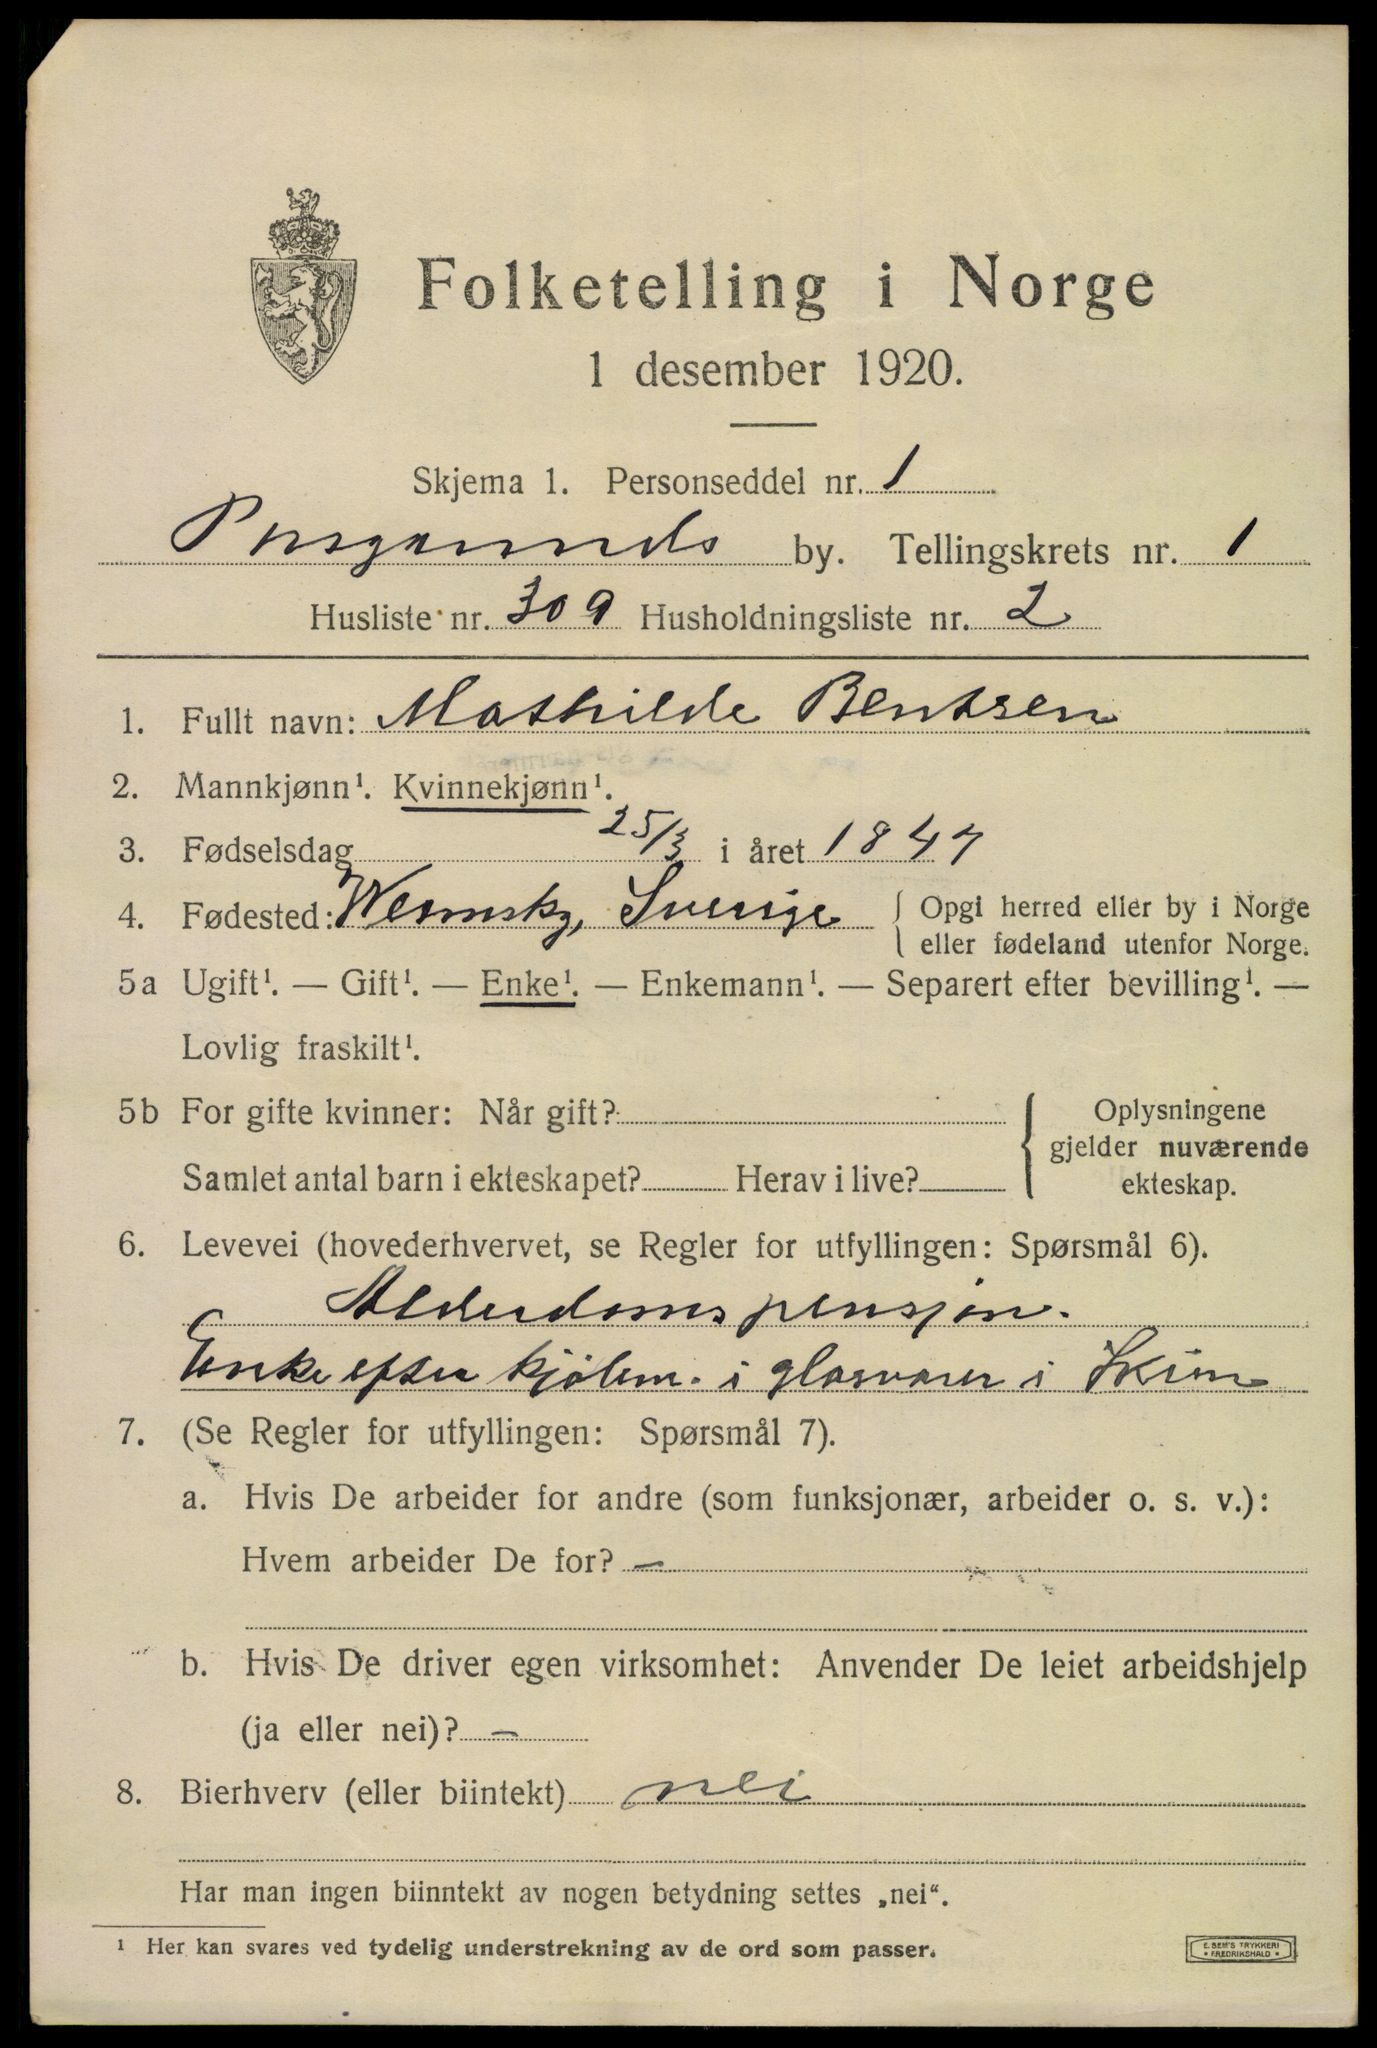 Folketelling i Norge
1 desember 1920.
Skjema 1. Personseddel nr. 1
Porsgrunds by. Tellingskrets nr. 1
Husliste nr. 309 Husholdningsliste nr. 2
1. Fullt navn: Mathilde Bentsen
2. Mannkjønn¹. Kvinnekjønn¹.
3. Fødselsdag 25/3 i året 1847
4. Fødested: Sverige { Opgi herred eller by i Norge
eller fødeland utenfor Norge.
5a Ugift¹. — Gift¹. — Enke¹. — Enkemann¹. — Separert efter bevilling¹. —
Lovlig fraskilt¹.
5b For gifte kvinner: Når gift? { Oplysningene
gjelder nuværende
Samlet antal barn i ekteskapet? Herav i live? ekteskap.
6. Levevei (hovederhvervet, se Regler for utfyllingen: Spørsmål 6).
Alderdomspensjon.
Enke efter kjølem. i glasvarer i Skien
7. (Se Regler for utfyllingen: Spørsmål 7).
a. Hvis De arbeider for andre (som funksjonær, arbeider o. s. v.):
Hvem arbeider De for? —
b. Hvis De driver egen virksomhet: Anvender De leiet arbeidshjelp
(ja eller nei)? —
8. Bierhverv (eller biintekt) nei
Har man ingen biinntekt av nogen betydning settes „nei“.
¹ Her kan svares ved tydelig understrekning av de ord som passer.
E. SEM'S TRYKKERI
• FREDRIKSHALD •